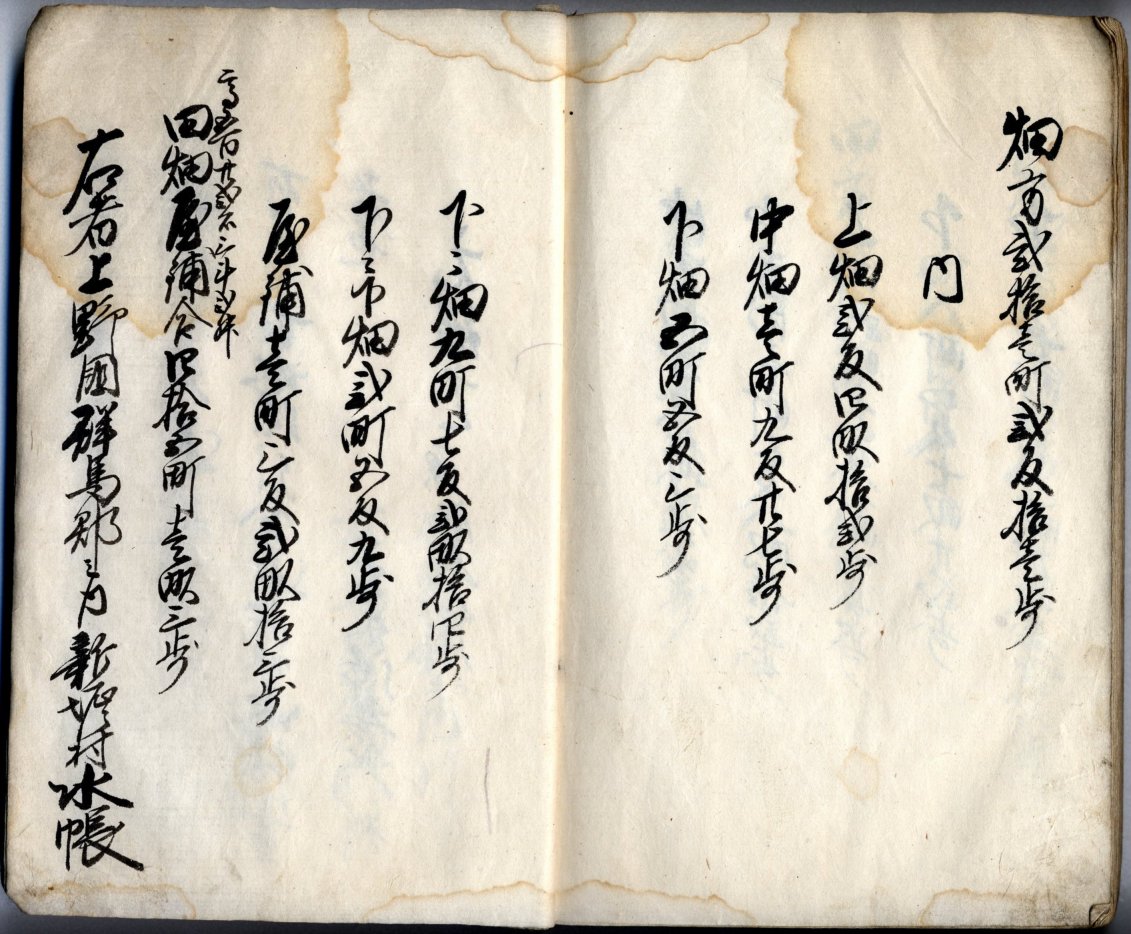 畑方弐拾壱町弐反拾壱歩
内
上畑弐反四畝拾弐歩
中畑壱町九反廿七歩
下畑五町五反三歩
下々畑九町七反弐畝拾四歩
下々下畑弐町五反九歩
屋鋪壱町三反弐畝拾三歩
高五百廿弐石三斗弐升
田畑屋鋪合四拾五町壱畝三歩
右者上野國群馬郡之内新堀村水帳